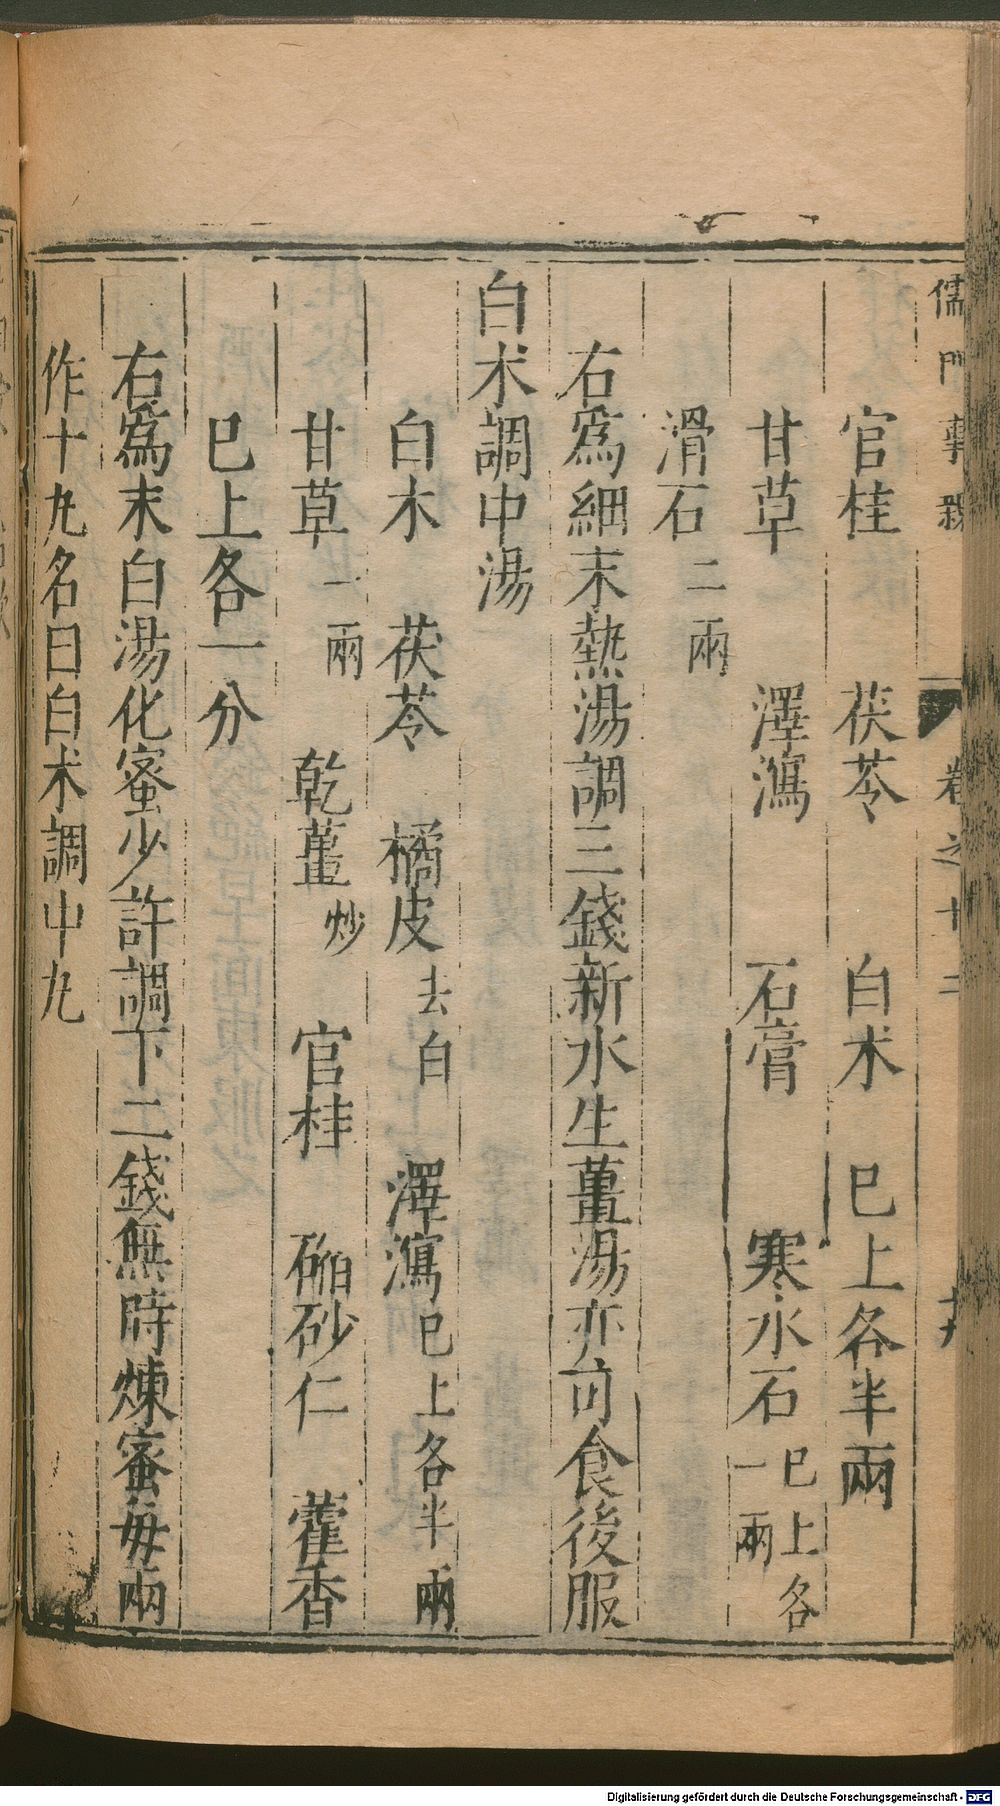 儒門事親 卷之十二
官桂 茯苓 白术 巳上各半兩
甘草 澤瀉 石膏 寒水石 巳上各一兩
滑石 二兩
右爲細末熱湯調三錢新水生薑湯亦可食後服
白术調中湯
白木 茯苓 橘皮 去白 澤瀉 巳上各半兩
甘草 一兩 乾薑 炒 官桂 砂仁 藿香
巳上各一分
右爲末白湯化蜜少許調下二錢無時煉蜜每兩
作十九名曰白术調中九
Digitalisierung gefördert durch die Deutsche Forschungsgemeinschaft - DFG